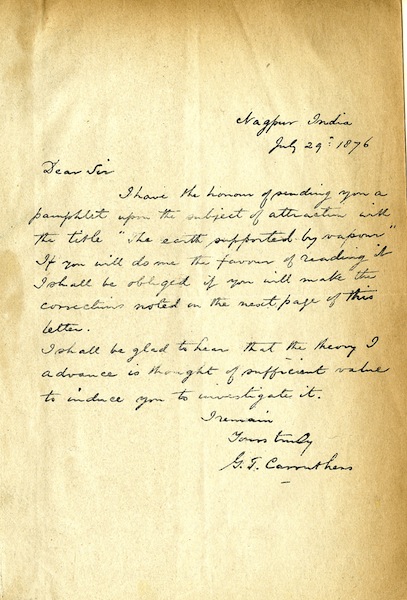 Nagpur India
July 29th 1876
Dear Sir
I have the honour of sending you a
pamphlet upon the subject of attraction with
the title "The earth supported by vapour"
If you will do me the favour of reading it
I shall be obliged if you will make the
corrections noted in the next page of this
letter.
I shall be glad to hear that the theory I
advance is thought of sufficient value
to induce you to investigate it.
I remain
Yours truly
G. T. Carruthers